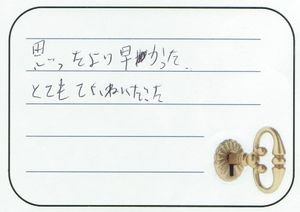 思ったより早かった
とてもていねいだった